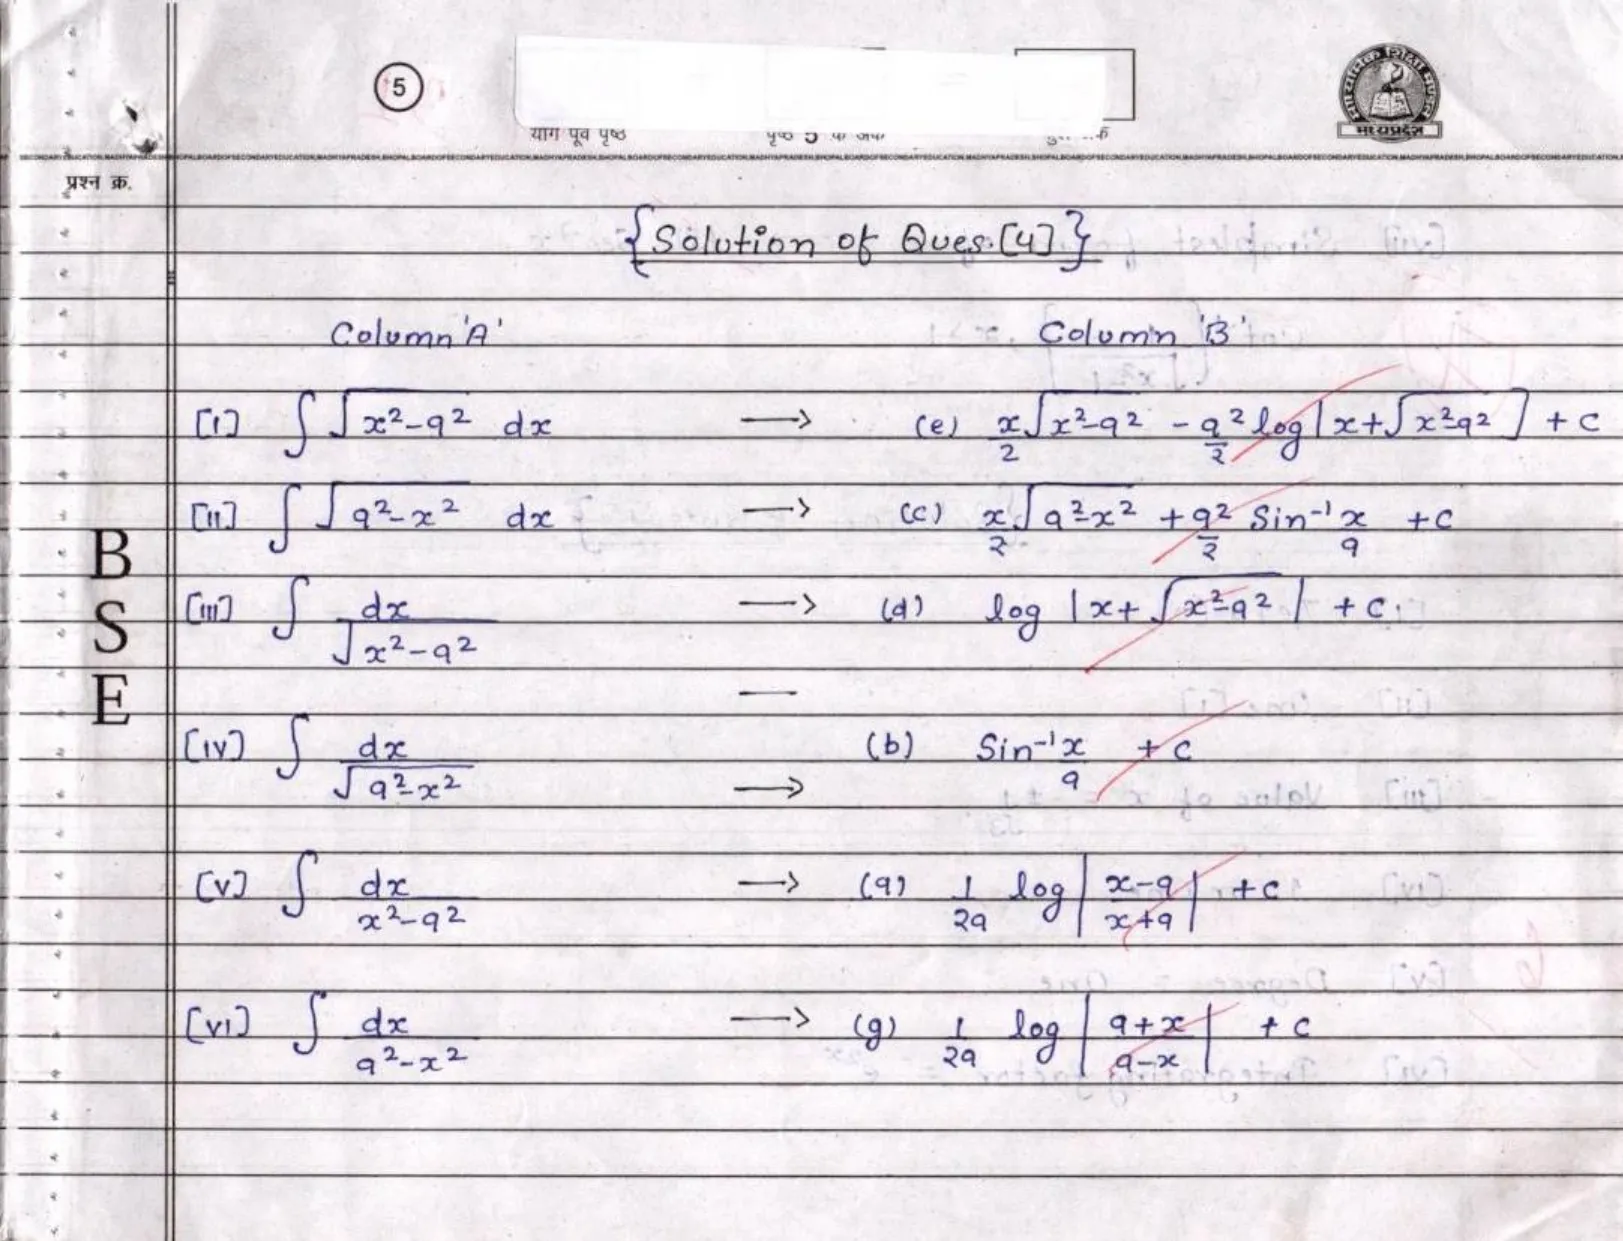 5
योग पूर्व पृष्ठ पृष्ठ 5 के अंक
मध्यप्रदेश
प्रश्न क्र.
{Solution of Ques.[4]}
Column 'A' Column 'B'
[I] ∫ √(x²-a²) dx → (e) x/2 √(x²-a²) - a²/2 log |x+√(x²-a²)| + c
[II] ∫ √(a²-x²) dx → (c) x/2 √(a²-x²) + a²/2 Sin⁻¹ x/a + c
[III] ∫ dx/√(x²-a²) → (d) log |x+√(x²-a²)| + c
[IV] ∫ dx/√(a²-x²) → (b) Sin⁻¹ x/a + c
[V] ∫ dx/(x²-a²) → (a) 1/2a log |(x-a)/(x+a)| + c
[VI] ∫ dx/(a²-x²) → (g) 1/2a log |(a+x)/(a-x)| + c
B
S
E